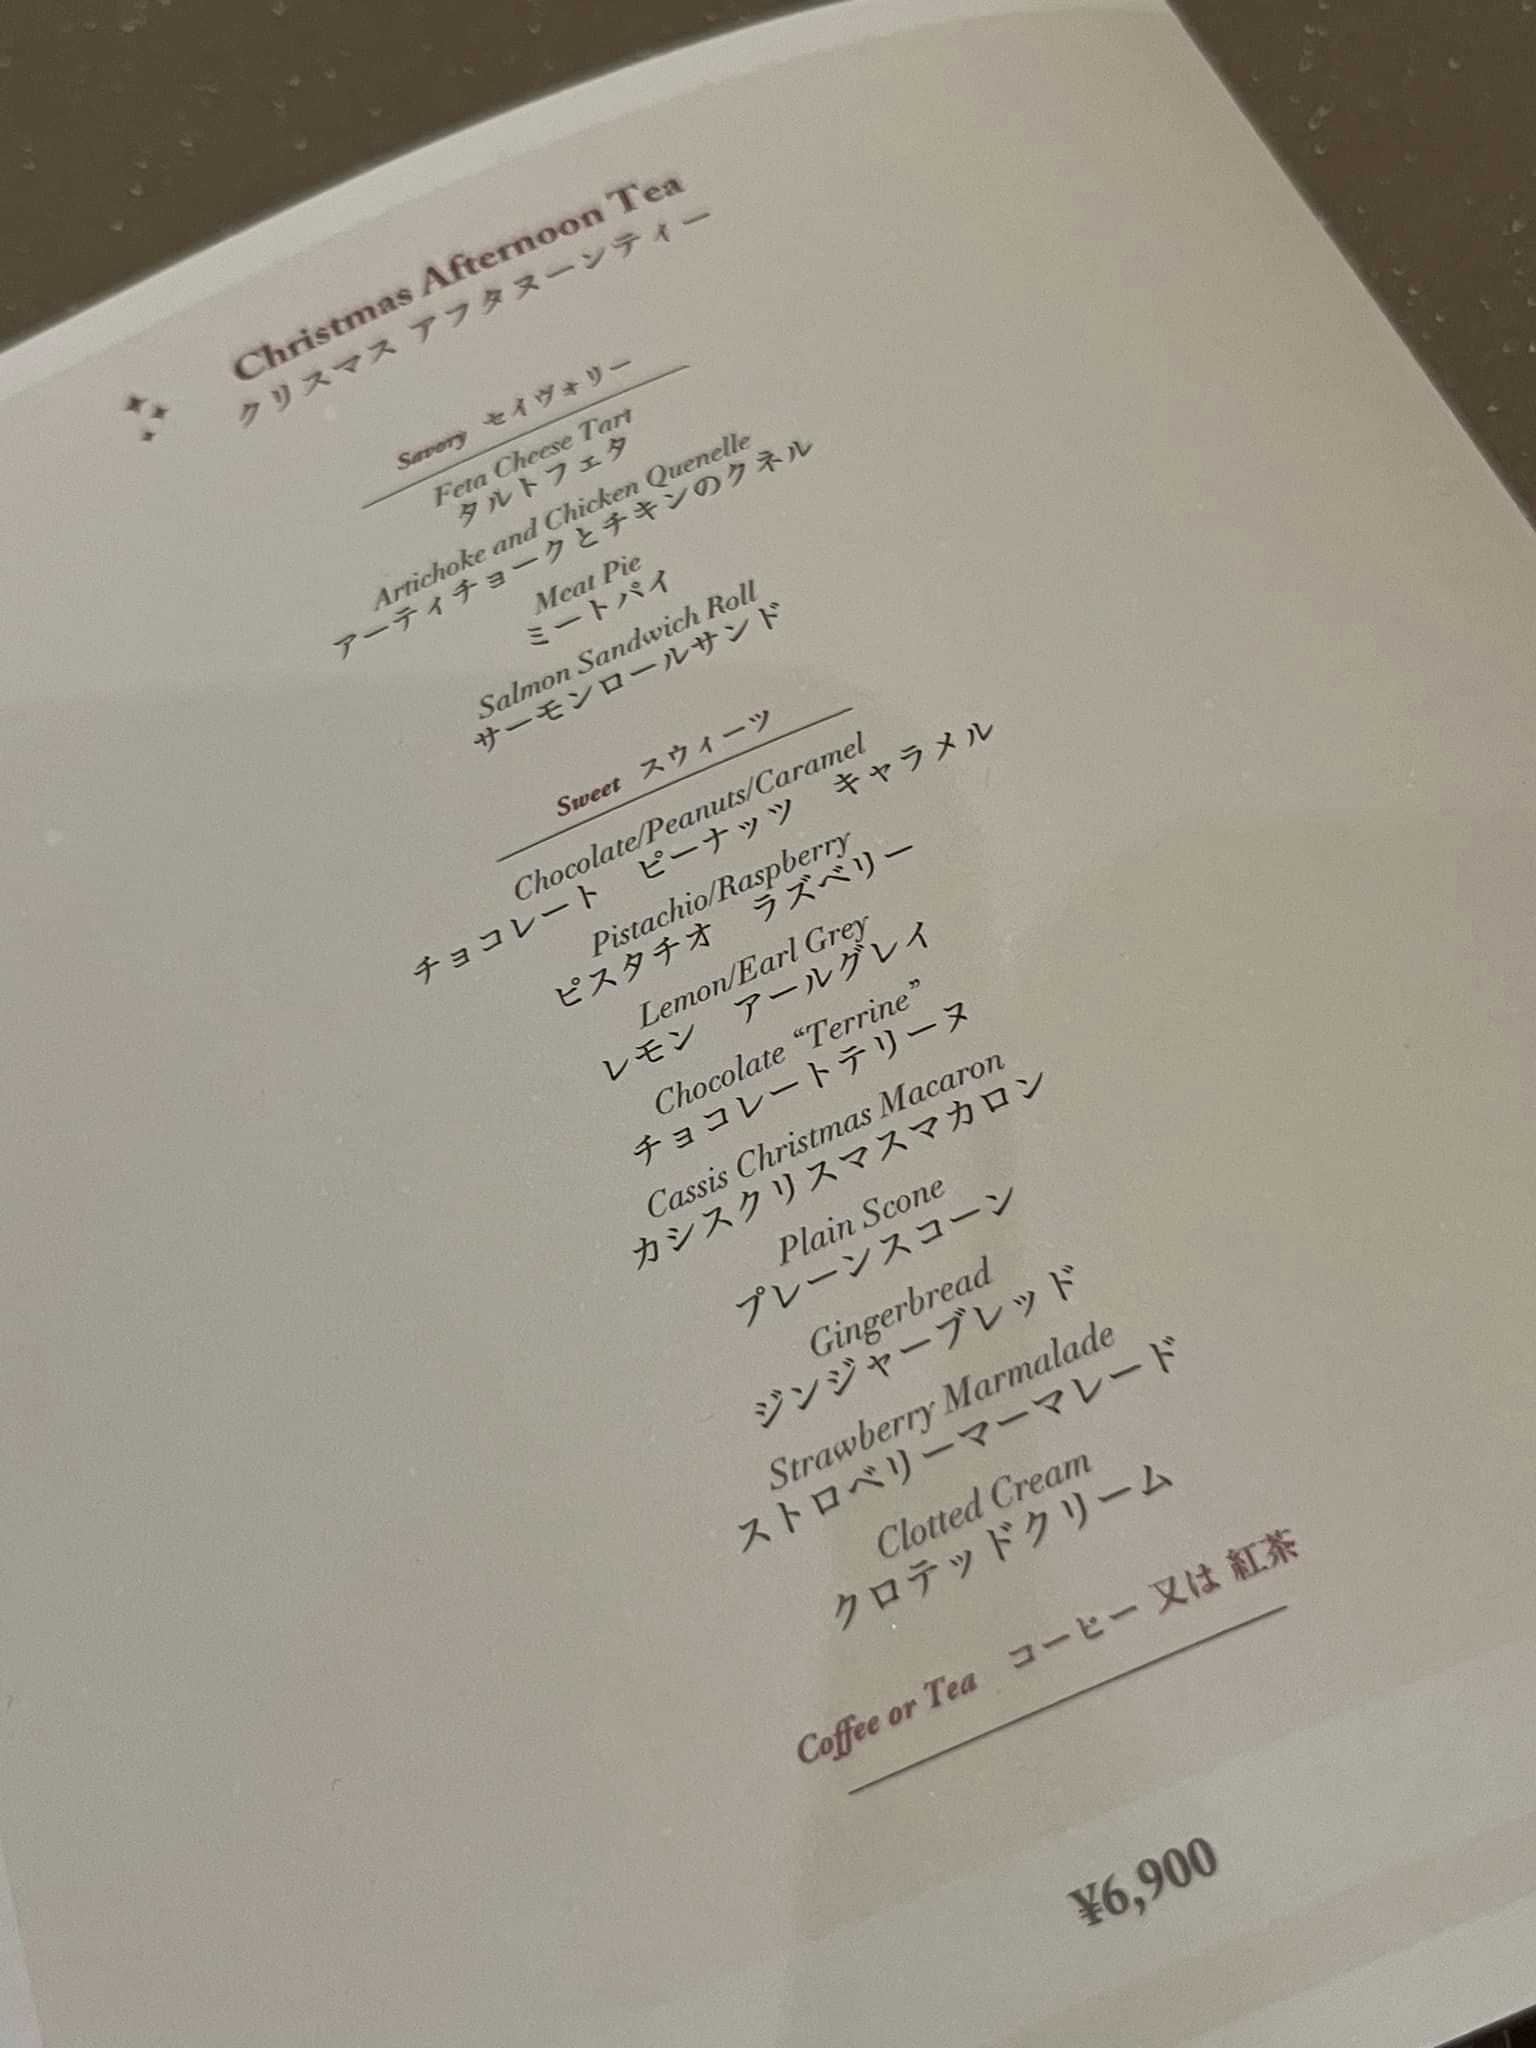 Christmas Afternoon Tea
クリスマス アフタヌーンティー
Savory セイヴォリー
Feta Cheese Tart
タルトフェタ
Artichoke and Chicken Quenelle
アーティチョークとチキンのクネル
Meat Pie
ミートパイ
Salmon Sandwich Roll
サーモンロールサンド
Sweet スウィーツ
Chocolate/Peanuts/Caramel
チョコレート ピーナッツ キャラメル
Pistachio/Raspberry
ピスタチオ ラズベリー
Lemon/Earl Grey
レモン アールグレイ
Chocolate “Terrine”
チョコレートテリーヌ
Cassis Christmas Macaron
カシスクリスマスマカロン
Plain Scone
プレーンスコーン
Gingerbread
ジンジャーブレッド
Strawberry Marmalade
ストロベリーマーマレード
Clotted Cream
クロテッドクリーム
Coffee or Tea コーヒー 又は 紅茶
¥6,900